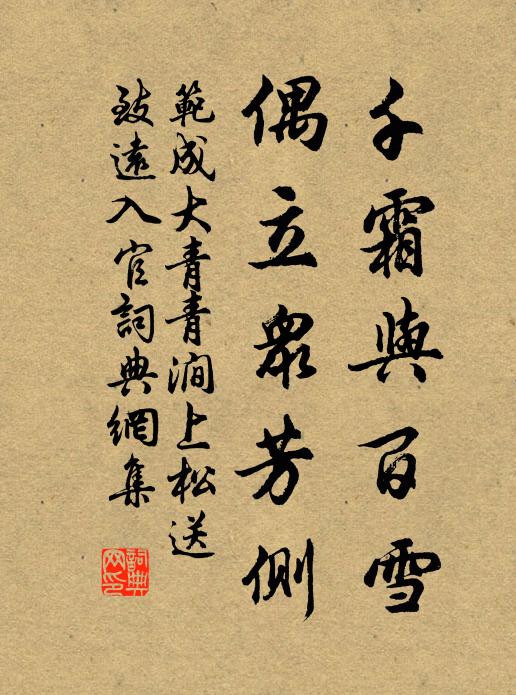 千霜與百雪
偶立眾芳側
範成大青青澗上松送
致遠入官詞典網集
詞典网印